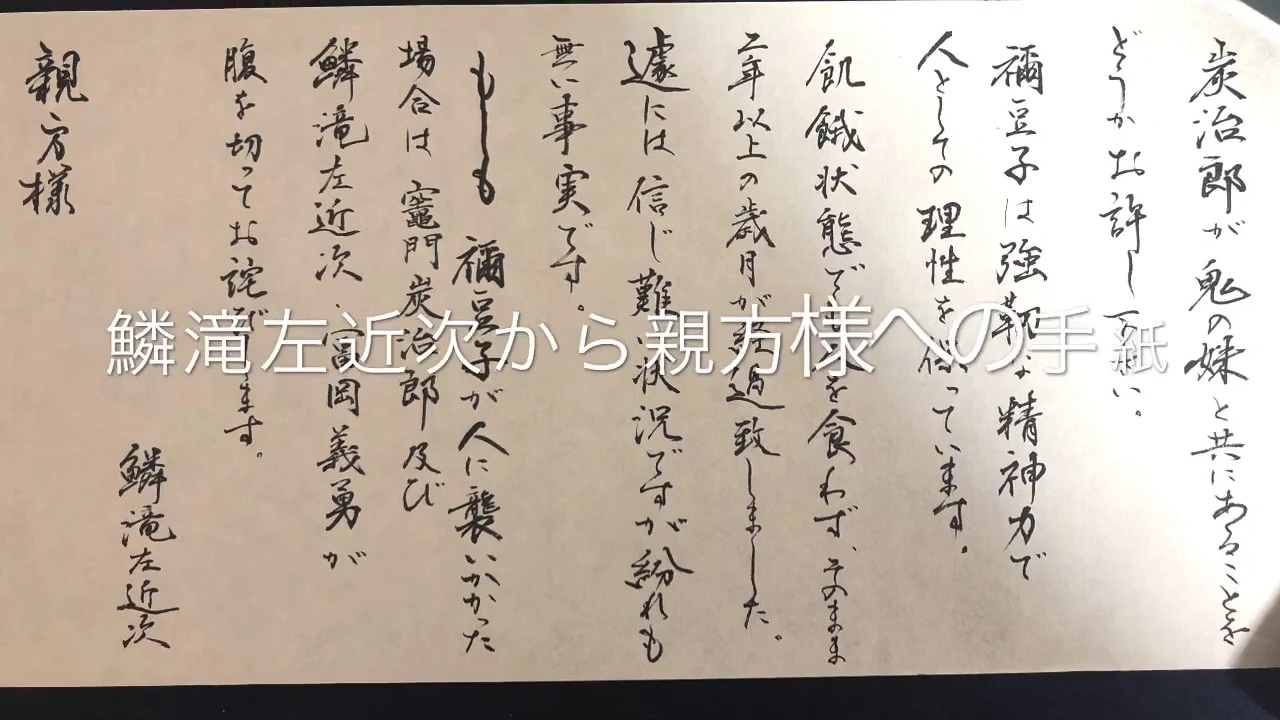 炭治郎が鬼の妹と共にあることを
どうかお許し下さい。
禰豆子は強靭な精神力で
人としての理性を保っています。
飢餓状態でも人を食わず、そのまま
二年以上の歳月が経過致しました。
遽には信じ難い状況ですが紛れも
無い事実です。
もしも禰豆子が人に襲いかかった
場合は竈門炭治郎及び
鱗滝左近次、冨岡義勇が
腹を切ってお詫び致します。
鱗滝左近次
親方様
鱗滝左近次から親方様への手紙